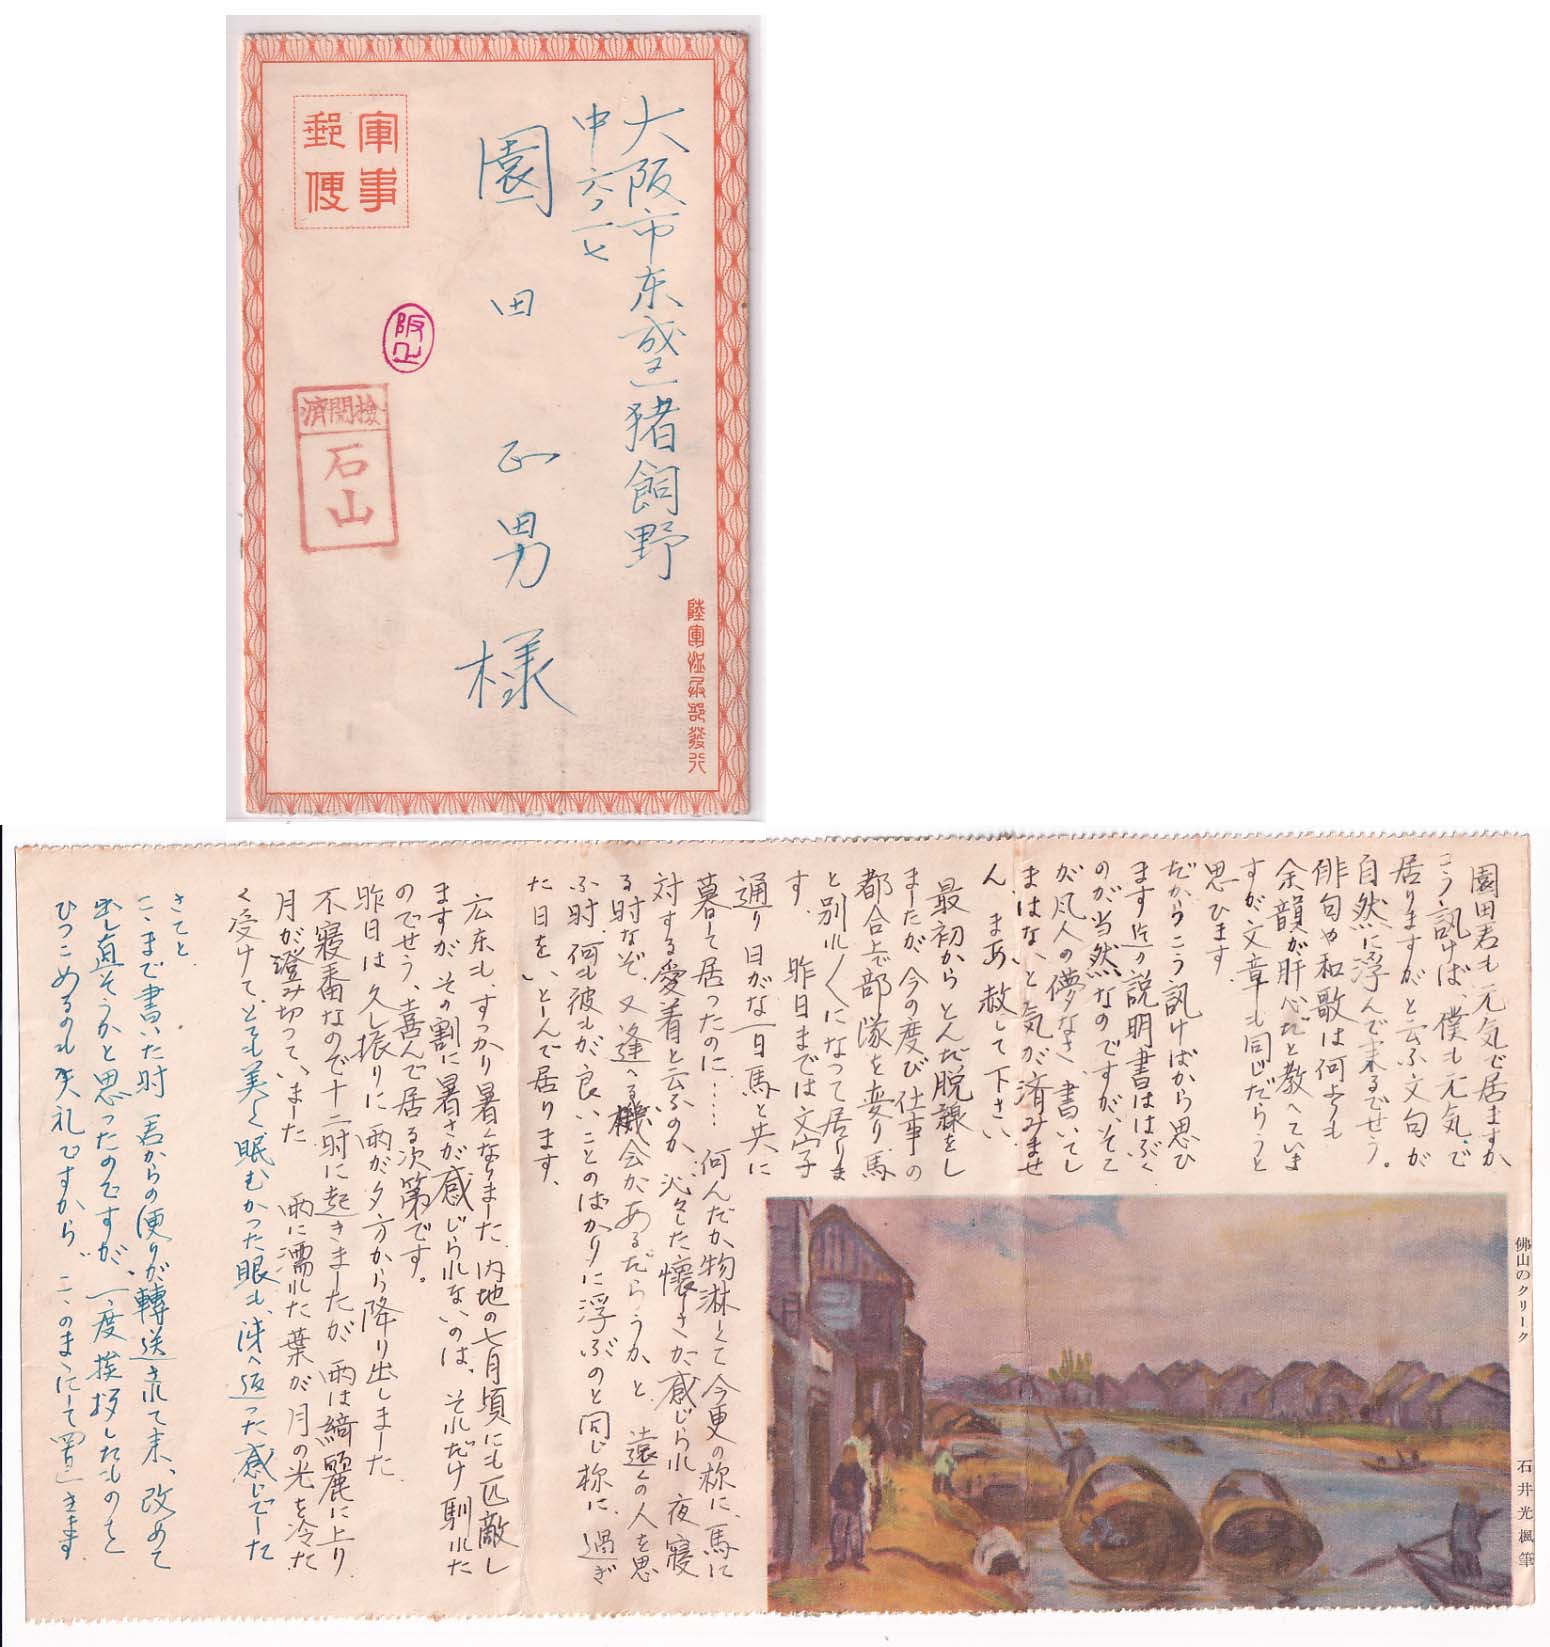 軍事
郵便
大阪市東成区猪飼野
中六ノ一七
園田正男様
阪
検閲済
石山
陸軍恤兵部發行
園田君も元気で居ますか
こう訊けば、僕も元気で
居りますがと云ふ文句が
自然に浮んで来るでせう。
俳句や和歌は何よりも
余韻が肝心だと教へていま
すが文章も同じだらうと
思ひます
だからこう訊けばから思ひ
ます迄の説明書ははぶく
のが当然なのですが、そこ
が凡人の儚なさ、書いてし
まはないと気が済みませ
ん、まあ赦して下さい
最初からとんだ脱線をし
ましたが今の度び仕事の
都合上で部隊を変り馬
と別れ〱になって居りま
す、昨日までは文字
通り日がな一日馬と共に
暮して居ったのに……何んだか物淋しくて今更の様に、馬に
対する愛着と云ふのか、沁々した懐しさが感じられ夜寝
る時なぞ又逢へる機会があるだらうかと遠くの人を思
ふ時、何も彼もが良いことのばかりに浮ぶのと同じ様に、過ぎ
た日をいとしんで居ります、
広東も、すっかり暑くなりました、内地の七月頃にも匹敵し
ますが、その割に暑さが感じられないのは、それだけ馴れた
のでせう、喜んで居る次第です。
昨日は久し振りに雨が夕方から降り出しました
不寝番なので十二時に起きましたが雨は綺麗に上り
月が澄み切っていました 雨に濡れた葉が月の光を冷た
く受けて、とても美くしく眠むかった眼も、洗へ返った感じでした
さてと、
こゝまで書いた時君からの便りが轉送されて来、改めて
出し直そうかと思ったのですが、一度挨拶したものを
ひっこめるのも失礼ですから、このまゝにして置きます
佛山のクリーク
石井光楓筆